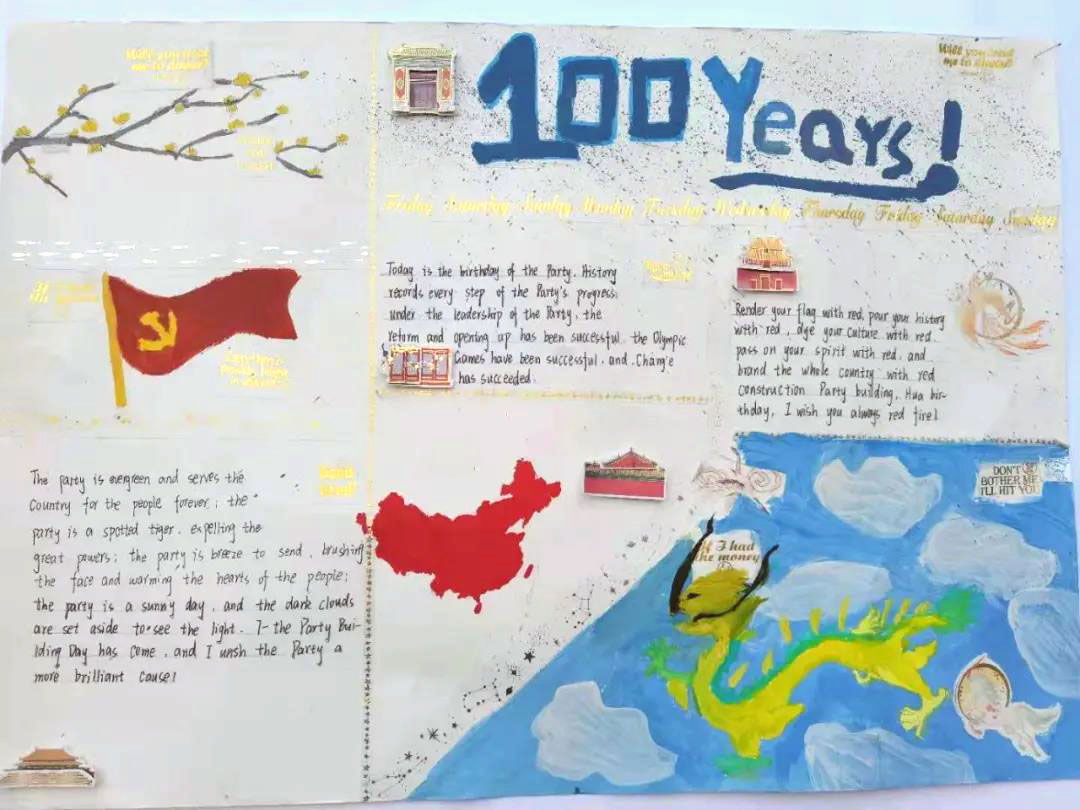 Will you need
me to dinner?
100 Years!
Will you need
me to dinner?
Friday Saturday Sunday Monday Tuesday Wednesday Thursday Friday Saturday Sunday
Today is the birthday of the Party. History
records every step of the Party's progress.
under the leadership of the Party, the
reform and opening up has been successful. the Olympic
Games have been successful. and. Chang'e
has succeeded.
Render your flag with red, pour your history
with red, dye your culture with red.
pass on your spirit with red. and
brand the whole country with red
construction Party building, Hua bir-
thday, I wish you always red fire!
The party is evergreen and serves the
Country for the people forever; the
party is a spotted tiger. expelling the
great powers; the party is breeze to send. brushing
the face and warming the hearts of the people;
the party is a sunny day. and the dark clouds
are set aside to see the light. 7-the Party Bui-
lding Day has come. and I wish the Party a
more brilliant cause!
DON'T
BOTHER ME
I'LL HIT YOU
If I had
the money